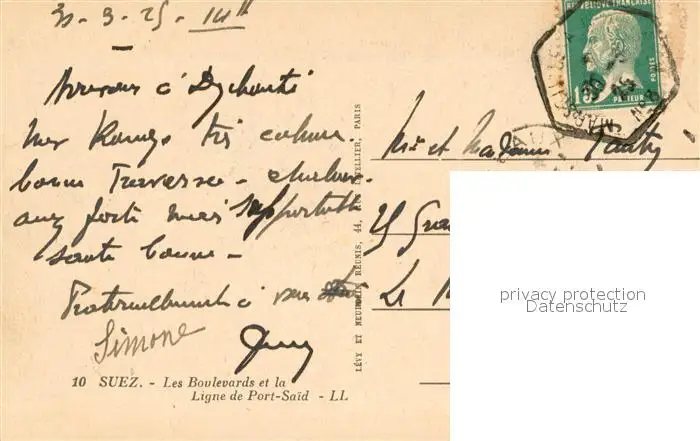 31-3-25 - 14h
Arrivons à Djibouti
Mer Rouge très calme.
bonne Traversée - chaleur
assez forte mais supportable
santé bonne -
Fraternellement à vous
Simone
10 SUEZ. - Les Boulevards et la
Ligne de Port-Saïd - LL
LÉVY ET NEURDEIN RÉUNIS, 44, RUE LETELLIER, PARIS
RÉPUBLIQUE FRANÇAISE
POSTES
PASTEUR
Mr et Madame
25
Le
privacy protection
Datenschutz